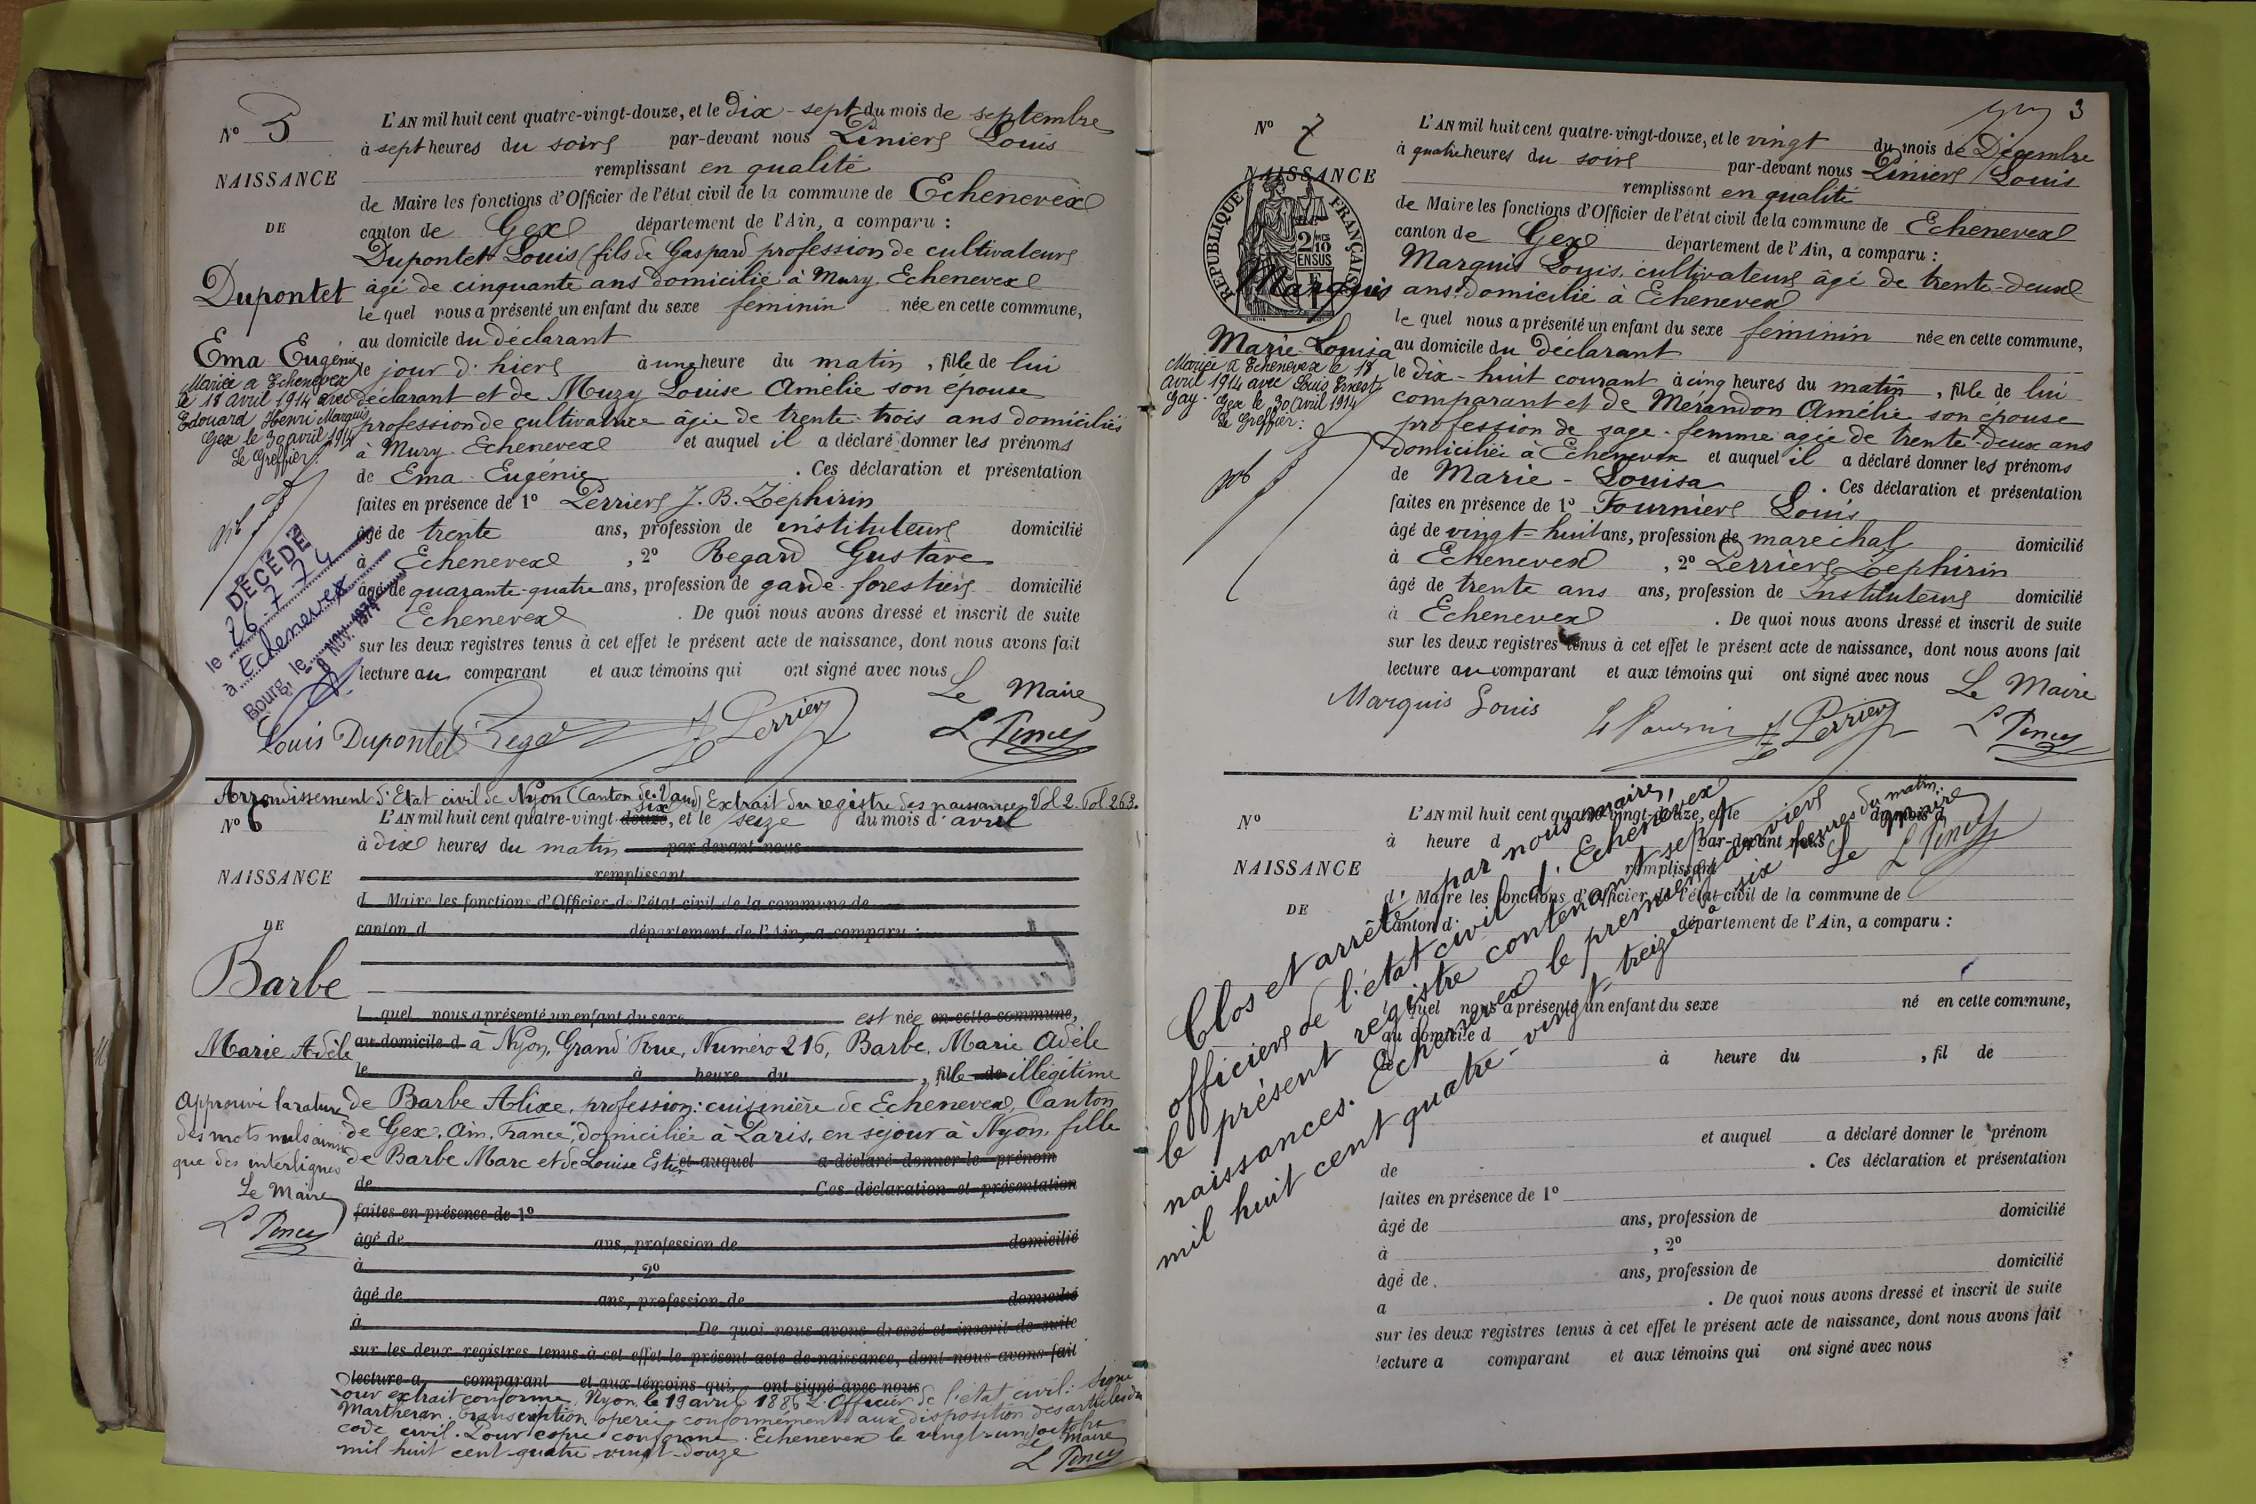 N° 5
NAISSANCE
DE
Dupontet
Ema Eugénie
Mariée à Echenevex
le 18 avril 1914 avec
Edouard Henri Marquis
Gex le 30 avril 1914
Le Greffier:
DÉCÉDÉ
le 26.7.74
à Echenevex
Bourg, le 8 NOV. 1974
L'AN mil huit cent quatre-vingt-douze, et le dix-sept du mois de septembre
à sept heures du soir par-devant nous Louis
remplissant en qualité
de Maire les fonctions d'Officier de l'état civil de la commune de Echenevex
canton de Gex département de l'Ain, a comparu :
Dupontet Louis (fils de Gaspard profession de cultivateur
âgé de cinquante ans domicilié à Mury Echenevex
le quel nous a présenté un enfant du sexe feminin née en cette commune,
au domicile du déclarant
le jour d'hier à une heure du matin, fille de lui
déclarant et de Muzy Louise Amélie son épouse
profession de cultivatrice âgée de trente-trois ans domiciliés
à Mury Echenevex et auquel il a déclaré donner les prénoms
de Ema Eugénie . Ces déclaration et présentation
faites en présence de 1° Perrier J. B. Zéphirin
âgé de trente ans, profession de instituteur domicilié
à Echenevex , 2° Regard Gustave
âgé de quarante-quatre ans, profession de garde-forestier domicilié
Echenevex . De quoi nous avons dressé et inscrit de suite
sur les deux registres tenus à cet effet le présent acte de naissance, dont nous avons fait
lecture au comparant et aux témoins qui ont signé avec nous
Le Maire
Louis Dupontet Regard Perrier
Arrondissement d'Etat civil de Nyon (Canton de Vaud) Extrait du registre des naissances Vol 2. Fol 263.
N° 6
NAISSANCE
DE
Barbe
Marie Adèle
Approuvé la rature
des mots nuls ainsi
que des interlignes
Le Maire
L'AN mil huit cent quatre-vingt-douze six, et le seize du mois d'avril
à dix heures du matin par-devant nous
remplissant
d Maire les fonctions d'Officier de l'état civil de la commune de
canton d département de l'Ain, a comparu :
l quel nous a présenté un enfant du sexe est née en cette commune,
au domicile d à Nyon, Grand'Rue, Numéro 216, Barbe, Marie Adèle
le à heure du , fille de illégitime
de Barbe Alixe, profession: cuisinière de Echenevex, Canton
de Gex, Ain, France, domiciliée à Paris, en séjour à Nyon, fille
de Barbe Marc et de Louise et auquel a déclaré donner le prénom
de . Ces déclaration et présentation
faites en présence de 1°
âgé de ans, profession de domicilié
à , 2°
âgé de ans, profession de domicilié
à . De quoi nous avons dressé et inscrit de suite
sur les deux registres tenus à cet effet le présent acte de naissance, dont nous avons fait
lecture a comparant et aux témoins qui ont signé avec nous
Pour extrait conforme, Nyon, le 19 avril 1886 L'Officier de l'état civil: signé
Martheran. Transcription opérée conformément aux disposition des articles du
code civil. Pour copie conforme. Echenevex le vingt-un octobre
mil huit cent quatre-vingt-douze
Le Maire
3
N° 7
NAISSANCE
RÉPUBLIQUE FRANÇAISE
2/10 EN SUS
Marquis
Marie Louisa
Mariée à Echenevex le 18
avril 1914 avec Louis Ernest
Gay. Gex le 30 avril 1914
Le Greffier:
L'AN mil huit cent quatre-vingt-douze, et le vingt du mois de Décembre
à quatre heures du soir par-devant nous Louis
remplissant en qualité
de Maire les fonctions d'Officier de l'état civil de la commune de Echenevex
canton de Gex département de l'Ain, a comparu :
Marquis Louis, cultivateur âgé de trente-deux
ans domicilié à Echenevex
le quel nous a présenté un enfant du sexe feminin née en cette commune,
au domicile du déclarant
le dix-huit courant à cinq heures du matin, fille de lui
comparant et de Mérandon Amélie son épouse
profession de sage-femme âgée de trente-deux ans
domiciliée à Echenevex et auquel il a déclaré donner les prénoms
de Marie-Louisa . Ces déclaration et présentation
faites en présence de 1° Fournier Louis
âgé de vingt-huit ans, profession de maréchal domicilié
à Echenevex , 2° Perrier Zéphirin
âgé de trente ans ans, profession de Instituteur domicilié
à Echenevex . De quoi nous avons dressé et inscrit de suite
sur les deux registres tenus à cet effet le présent acte de naissance, dont nous avons fait
lecture au comparant et aux témoins qui ont signé avec nous
Le Maire
Marquis Louis L Fournier Perrier
N°
NAISSANCE
DE
L'AN mil huit cent quatre-vingt-douze, et le du mois d
à heure d par-devant nous
remplissant
d' Maire les fonctions d'Officier de l'état civil de la commune de
canton d département de l'Ain, a comparu :
l quel nous a présenté un enfant du sexe né en cette commune,
au domicile d
le à heure du , fil de
et auquel a déclaré donner le prénom
de . Ces déclaration et présentation
faites en présence de 1°
âgé de ans, profession de domicilié
à , 2°
âgé de ans, profession de domicilié
a . De quoi nous avons dressé et inscrit de suite
sur les deux registres tenus à cet effet le présent acte de naissance, dont nous avons fait
lecture a comparant et aux témoins qui ont signé avec nous
Clos et arrêté par nous maire,
officier de l'état civil d'Echenevex
le présent registre contenant sept
naissances. Echenevex le premier janvier
mil huit cent quatre-vingt-treize à six heures du matin.
Le Maire